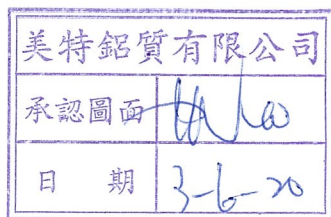 美特鋁質有限公司
承認圖面
日 期 3-6-20